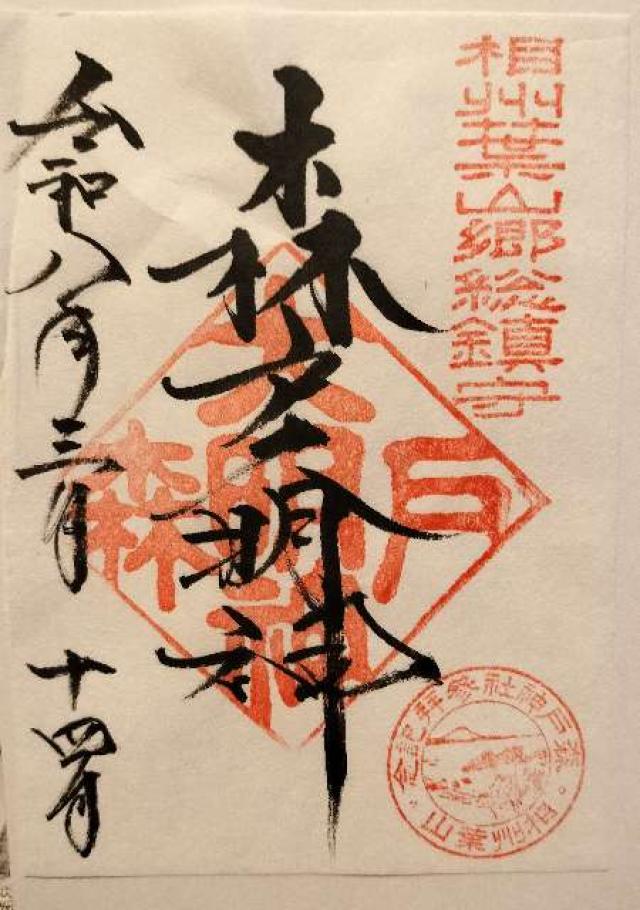 相州葉山郷総鎮守
森戸明神
大明神
森戸
令和八年三月十四日
森戸神社参拝記念
相州葉山